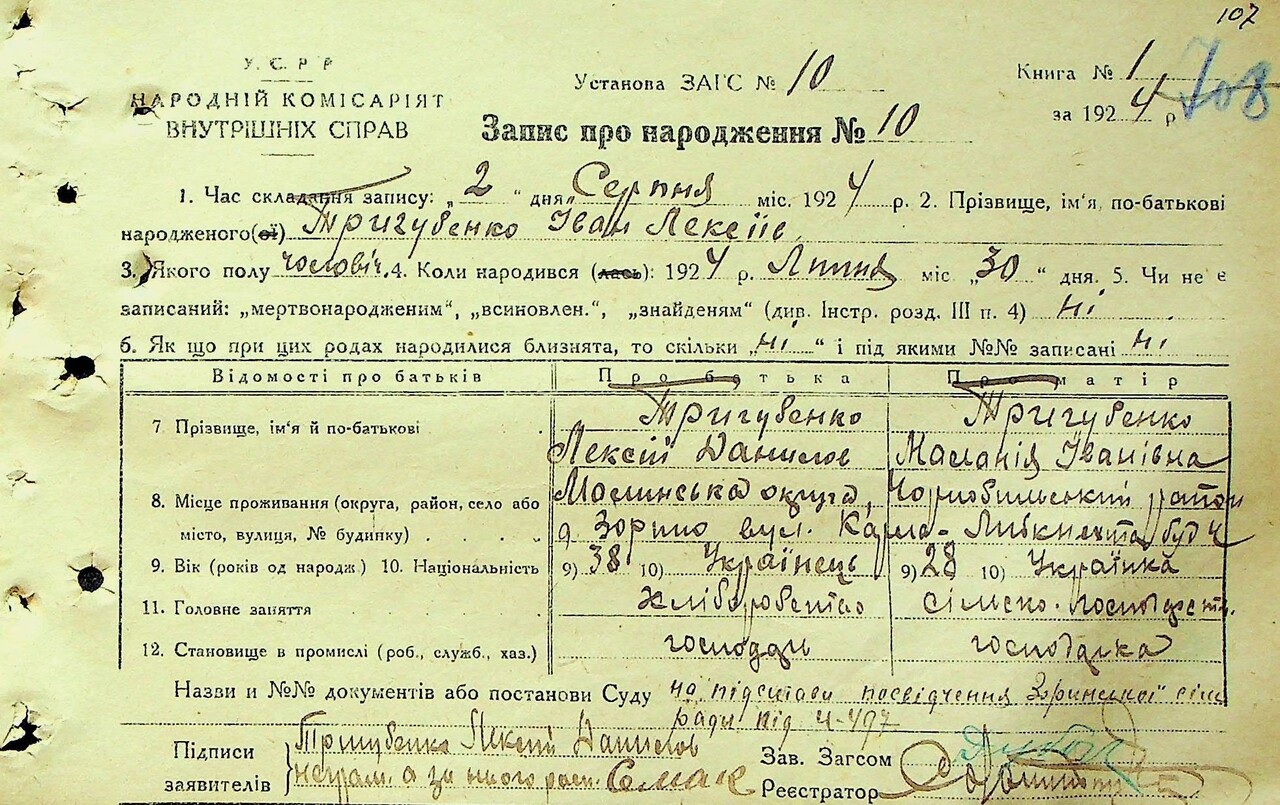 107
У.С.Р.Р
НАРОДНІЙ КОМІСАРІЯТ
ВНУТРІШНІХ СПРАВ
Установа ЗАГС № 10
Книга № 1
708
за 1924 р
Запис про народження № 10
1. Час складання запису: „2“ дня „Серпня міс. 1924 р. 2. Прізвище, ім'я, по-батькові
народженого(ої) Тригубенко Іван Лексіїв
3. Якого полу чоловіч. 4. Коли народився (лась): 1924 р. Липня міс „30“ дня. 5. Чи не є
записаний: „мертвонародженим“, „всиновлен.“, „знайденям“ (див. Інстр. розд. III п. 4) ні
6. Як що при цих родах народилися близнята, то скільки „ні“ і під якими №№ записані ні
Відомості про батьків Про батька Про матір
7 Прізвище, ім'я й по-батькові Тригубенко Тригубенко
Лексій Данилов Маланія Іванівна
8. Місце проживання (округа, район, село або Малинська округа, Чорнобильський район
місто, вулиця, № будинку) . . . . . вул. Карла-Лібкнехта буд 4
9. Вік (років од народж.) 10. Національність 9) 38 10) Українець 9) 28 10) Українка
11. Головне заняття сільско-господарств.
12. Становище в промислі (роб., служб., хаз.) господар господарка
Назви и №№ документів або постанови Суду на підставі посвідчення Зоринської сіль
ради під ч-497
Підписи
заявителів
Тригубенко Лексій Данилов
неграм. а за нього расп. Семак
Зав. Загсом
Реєстратор